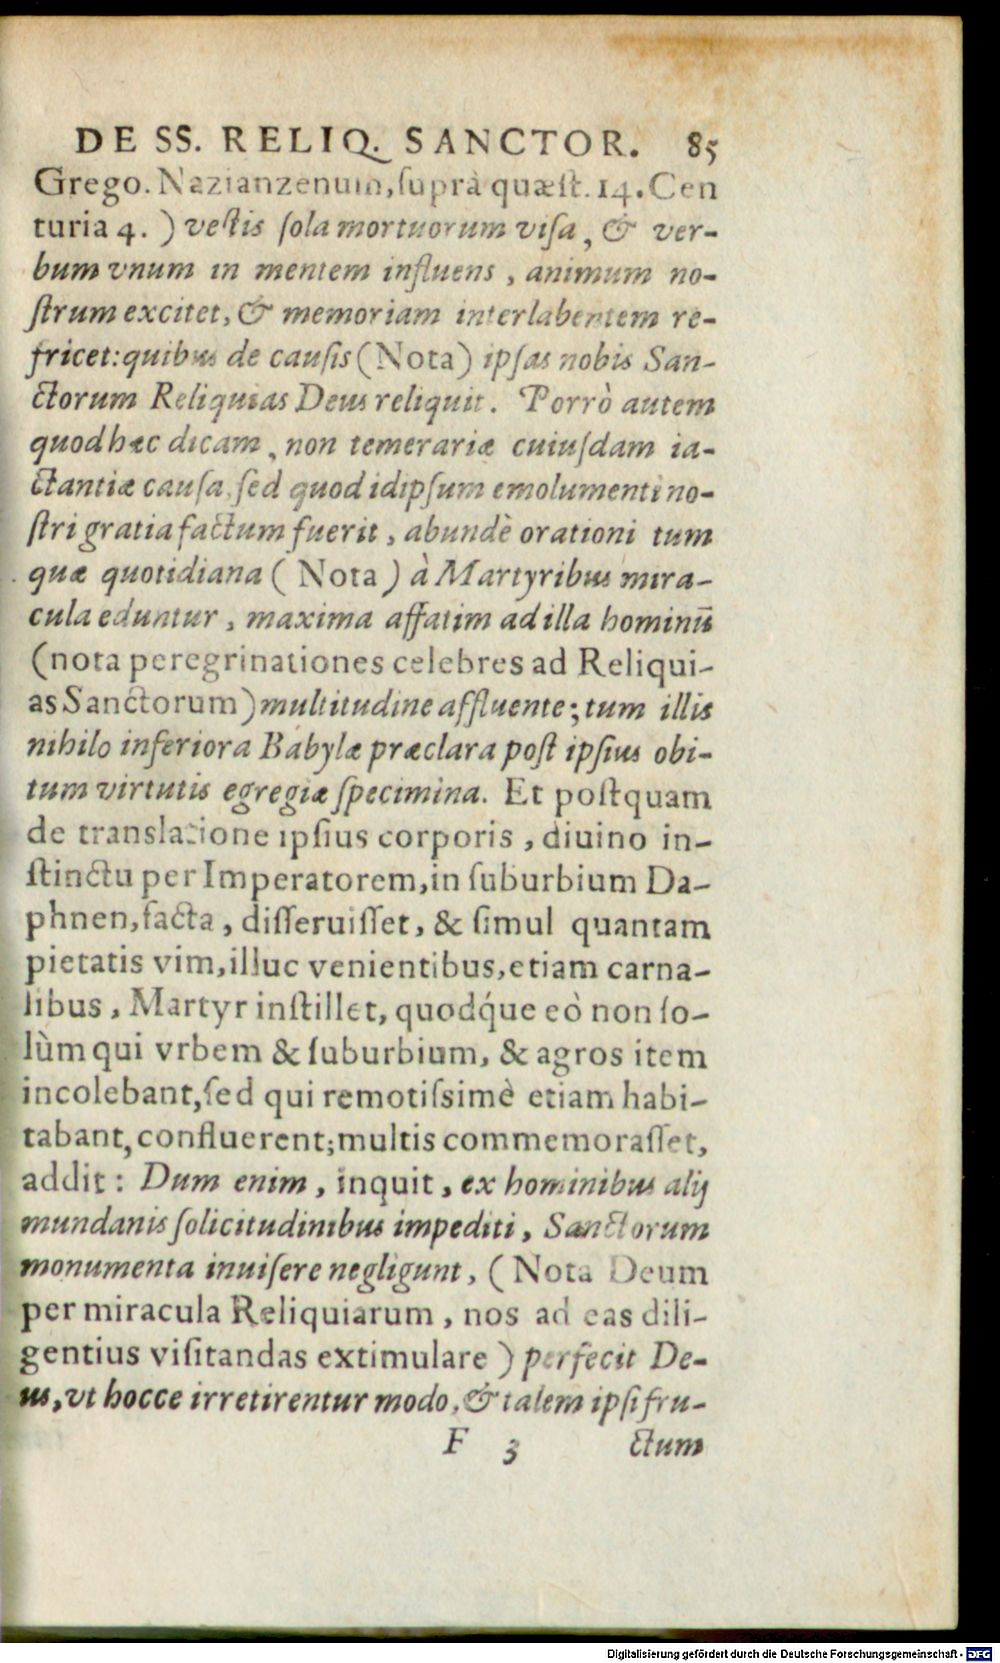 DE SS. RELIQ. SANCTOR. 85
Grego. Nazianzenum, ſuprà quæſt. 14. Cen
turia 4. ) veſtis ſola mortuorum viſa, & ver-
bum vnum in mentem influens, animum no-
ſtrum excitet, & memoriam interlabentem re-
fricet: quibus de cauſis (Nota) ipſas nobis San-
ctorum Reliquias Deus reliquit. Porrò autem
quod hæc dicam, non temerariæ cuiuſdam ia-
ctantiæ cauſa, ſed quod idipſum emolumenti no-
ſtri gratia factum fuerit, abundè orationi tum
quæ quotidiana ( Nota ) à Martyribus mira-
cula eduntur, maxima affatim ad illa hominū
(nota peregrinationes celebres ad Reliqui-
as Sanctorum) multitudine affluente; tum illis
nihilo inferiora Babylæ præclara poſt ipſius obi-
tum virtutis egregiæ ſpecimina. Et poſtquam
de translatione ipſius corporis, diuino in-
ſtinctu per Imperatorem, in ſuburbium Da-
phnen, facta, diſſeruiſſet, & ſimul quantam
pietatis vim, illuc venientibus, etiam carna-
libus, Martyr inſtillet, quodq́ue eò non ſo-
lùm qui vrbem & ſuburbium, & agros item
incolebant, ſed qui remotiſsimè etiam habi-
tabant, confluerent; multis commemoraſſet,
addit: Dum enim, inquit, ex hominibus alij
mundanis ſolicitudinibus impediti, Sanctorum
monumenta inuiſere negligunt, ( Nota Deum
per miracula Reliquiarum, nos ad eas dili-
gentius viſitandas extimulare ) perfecit De-
us, vt hocce irretirentur modo, & talem ipſi fru-
F 3 ctum
Digitalisierung gefördert durch die Deutsche Forschungsgemeinschaft - DFG